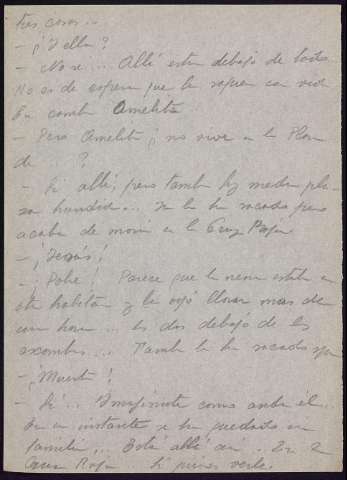 tres casas...
- ¡Y ella?
- No se... Allí están debajo de todo.
No es de esperar que la saquen con vida
En cambio Amelita
- Pero Amelita ¿no vive en la Plaza
de ?
- Si allí, pero también hay media pla-
za hundida... Ya la han sacado pero
acaba de morir en la Cruz Roja
- ¡Jesús!
- ¡Pobre! Parece que la nena estaba en
otra habitación y la oyó llorar mas de
una hora... las dos debajo de los
escombros... También la han sacado ya
- ¡Muerta!
- Si... Imagínate como anda él.
En un instante se ha quedado sin
familia... Está allí aún. En la
Cruz Roja Si quieres verle.